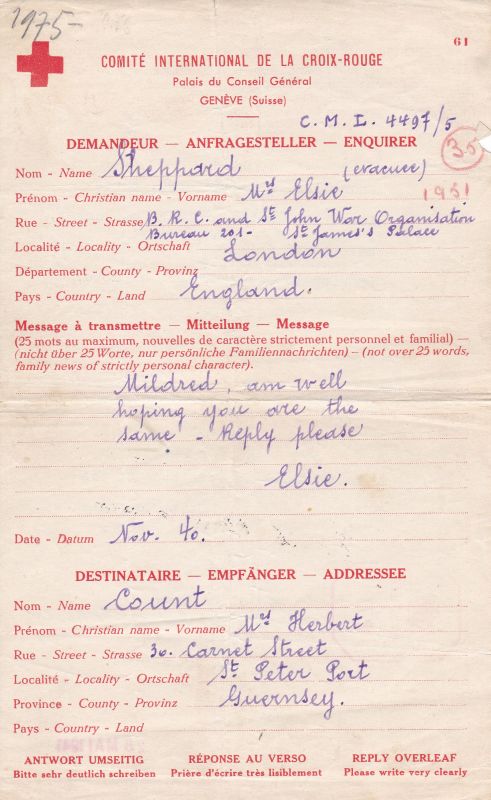 1975-
61
COMITÉ INTERNATIONAL DE LA CROIX-ROUGE
Palais du Conseil Général
GENÈVE (Suisse)
C. M. L. 4497/5
DEMANDEUR — ANFRAGESTELLER — ENQUIRER
35
Nom - Name Sheppard (evacuee)
Prénom - Christian name - Vorname Mrs Elsie
1951
Rue - Street - Strasse B. R. C. and St John War Organisation
Bureau 201 - St James's Palace
Localité - Locality - Ortschaft London
Département - County - Provinz
Pays - Country - Land England.
Message à transmettre — Mitteilung — Message
(25 mots au maximum, nouvelles de caractère strictement personnel et familial) —
(nicht über 25 Worte, nur persönliche Familiennachrichten) — (not over 25 words,
family news of strictly personal character).
Mildred, am well
hoping you are the
same - Reply please
Elsie.
Date - Datum Nov. 40.
DESTINATAIRE — EMPFÄNGER — ADDRESSEE
Nom - Name Count
Prénom - Christian name - Vorname Mrs Herbert
Rue - Street - Strasse 30. Carnet Street
Localité - Locality - Ortschaft St Peter Port
Province - County - Provinz Guernsey.
Pays - Country - Land
ANTWORT UMSEITIG RÉPONSE AU VERSO REPLY OVERLEAF
Bitte sehr deutlich schreiben Prière d'écrire très lisiblement Please write very clearly